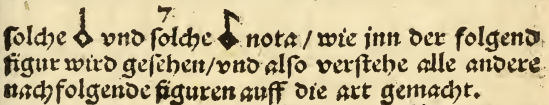 7
solche vnd solche nota / wie inn der folgend
figur wird gesehen/vnd also verstehe alle andere
nachfolgende figuren auff die art gemacht.